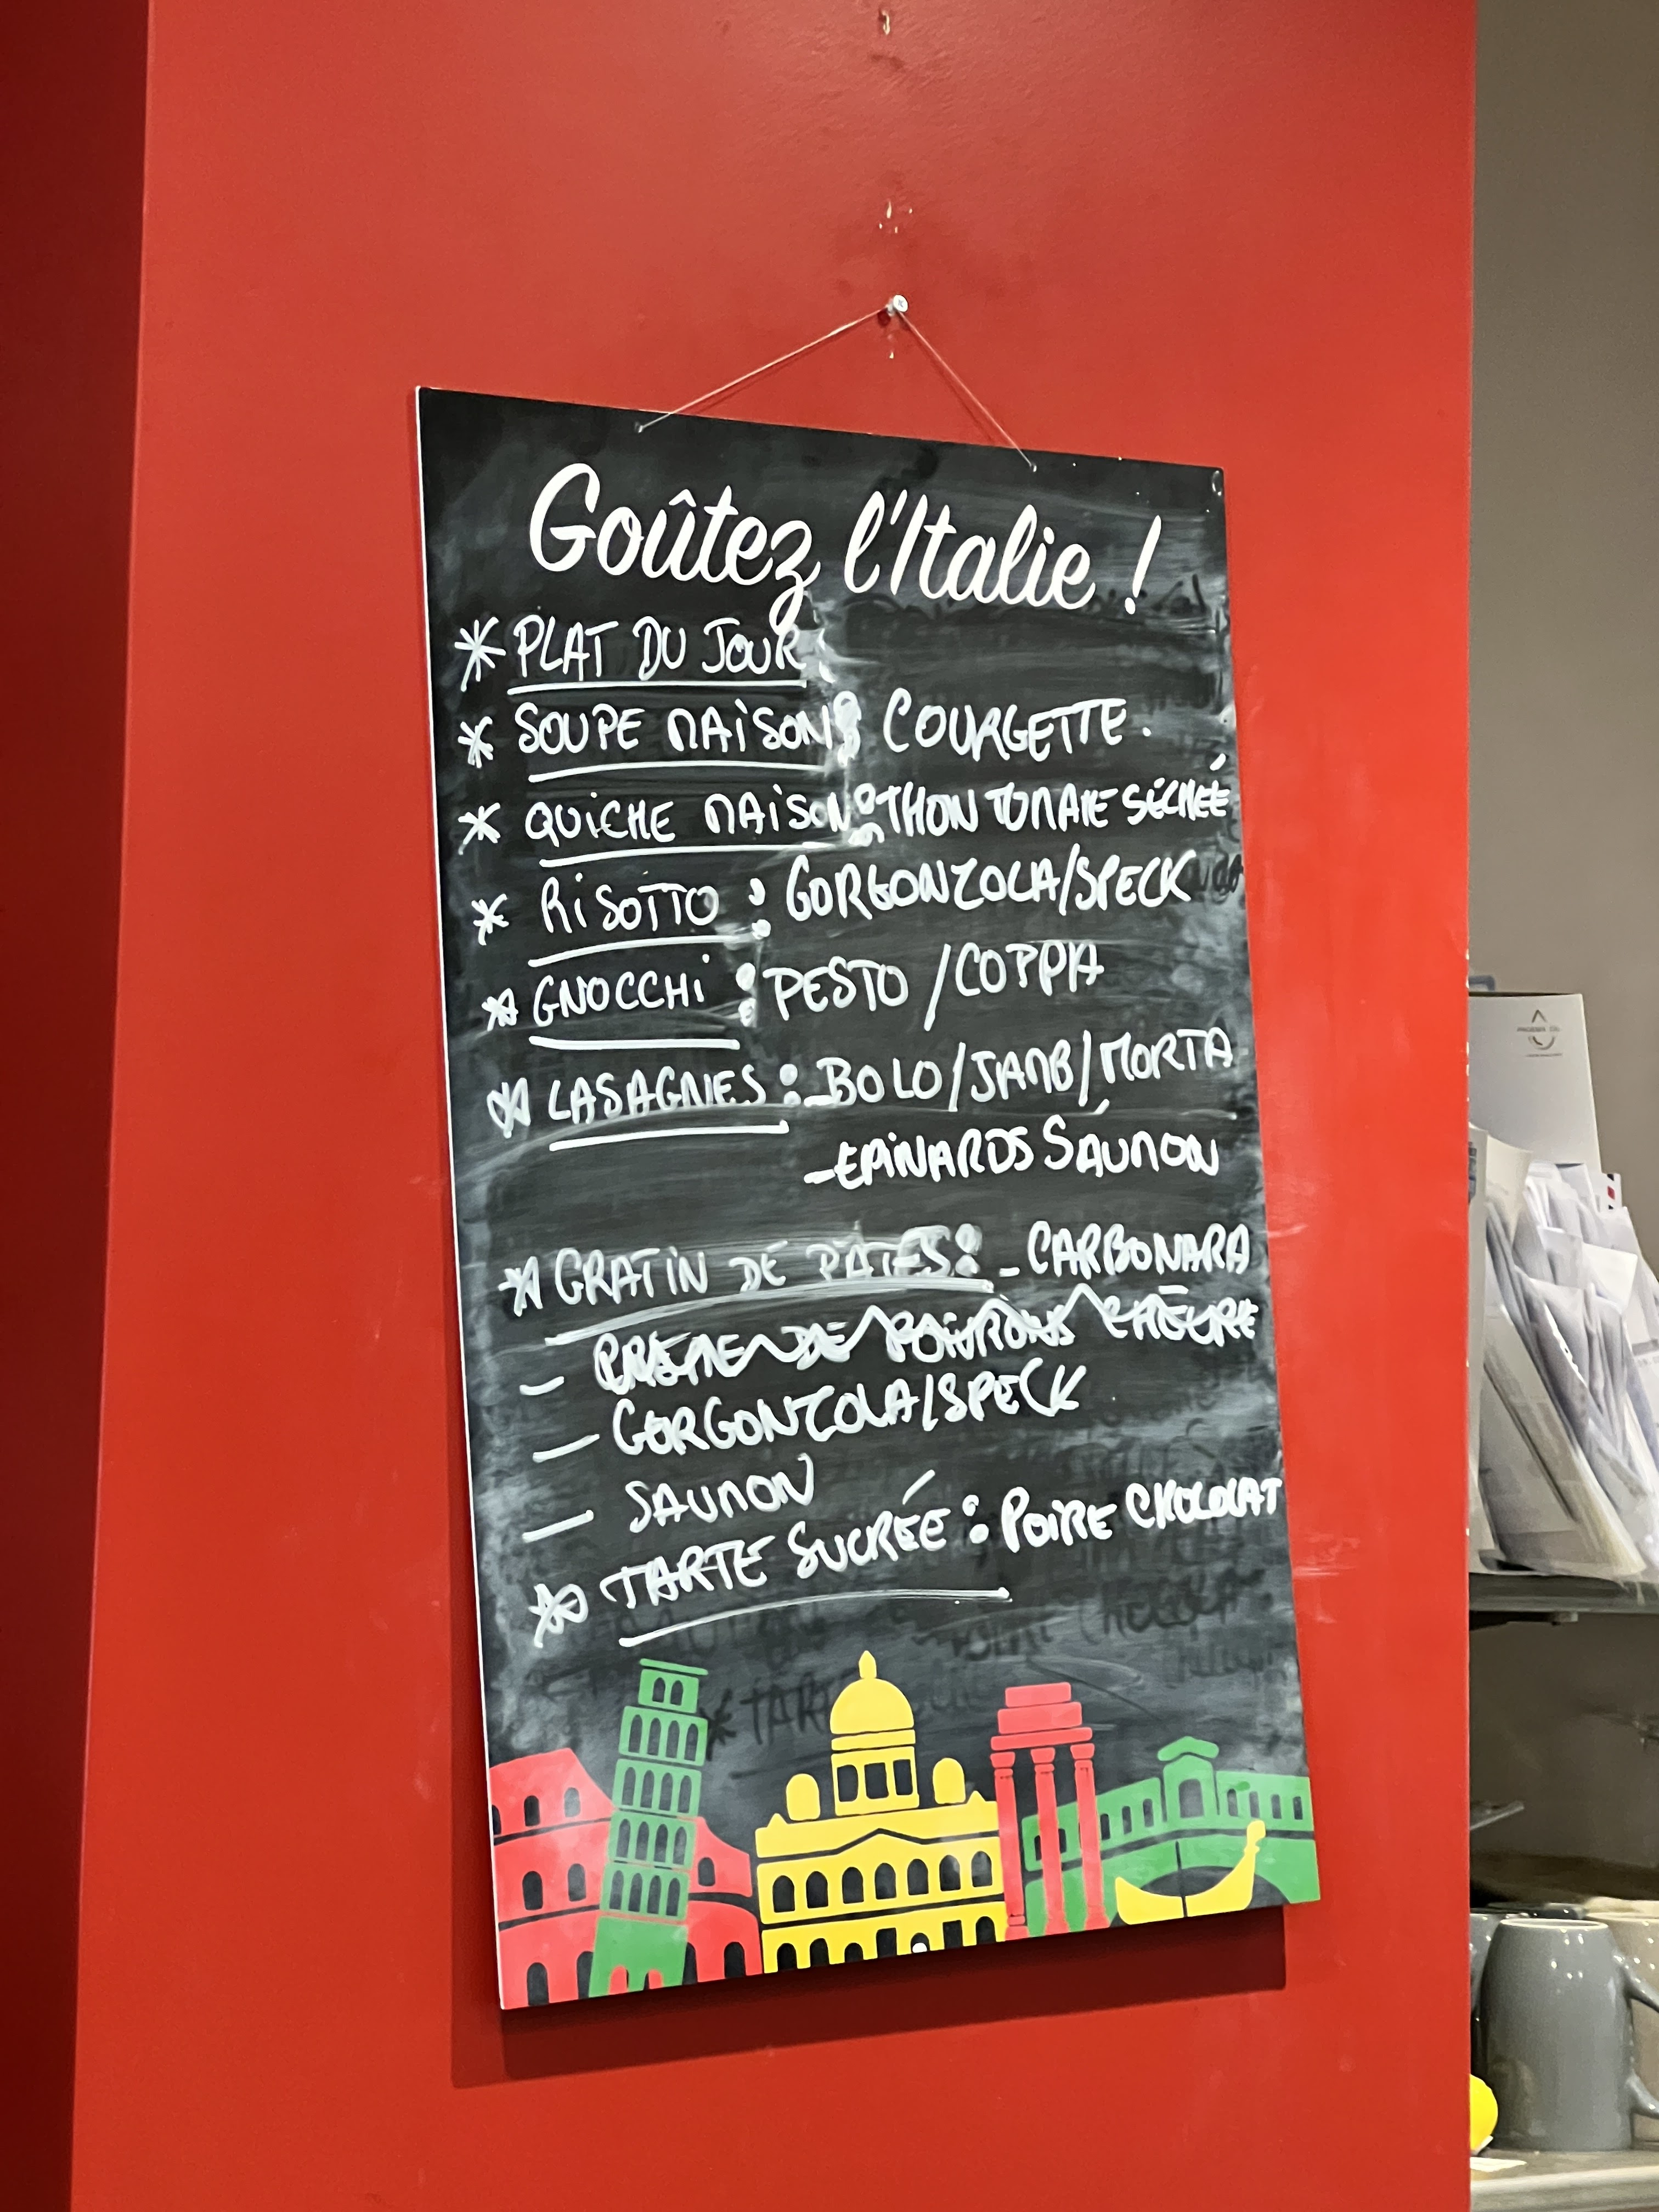 Goûtez l'Italie !
* PLAT DU JOUR
* SOUPE MAISON : COURGETTE.
* QUICHE MAISON : THON TOMATE SÉCHÉE
* RISOTTO : GORGONZOLA/SPECK
* GNOCCHI : PESTO / COPPA
* LASAGNES : - BOLO/JAMB/MORTA
- EPINARDS SAUMON
* GRATIN DE PATES : - CARBONARA
- CRÈME DE POIVRONS CHÈVRE
- GORGONZOLA/SPECK
- SAUMON
* TARTE SUCRÉE : POIRE CHOCOLAT